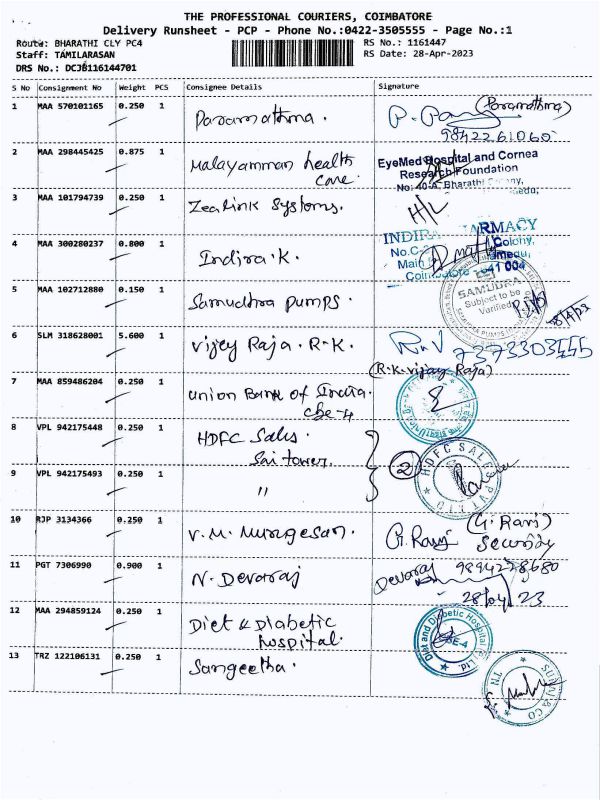 THE PROFESSIONAL COURIERS, COIMBATORE
Delivery Runsheet - PCP - Phone No.:0422-3505555 - Page No.:1
Route: BHARATHI CLY PC4
RS No.: 1161447
Staff: TAMILARASAN
RS Date: 28-Apr-2023
DRS No.: DCJB116144701
S No Consignment No Weight PCS Consignee Details Signature
1 MAA 570101165 0.250 1 Paramathma. (Paramathma)
9842261060
2 MAA 298445425 0.875 1 Malayamman health care
EyeMed Hospital and Cornea
Research Foundation
No: 40-A, Bharathi Colony,
3 MAA 101794739 0.250 1 Zealink Systems. H/L
4 MAA 300280237 0.800 1 Indira.K.
INDIRA PHARMACY
Colony,
Main
Coimbatore - 641 004
5 MAA 102712880 0.150 1 Samudhra pumps.
SAMUDRA
Subject to be
Verified
28/4/23
6 SLM 318628001 5.600 1 Vijey Raja.R.K. 7373303555
(R.K.Vijay Raja)
7 MAA 859486204 0.250 1 Union Bank of India.
cbe-4
8 VPL 942175448 0.250 1 HDFC Sales.
Sai tower.
2
HDFC SALES PVT LTD
9 VPL 942175493 0.250 1 "
10 RJP 3134366 0.250 1 V.M. Murugesan. G. Ravi (G. Ravi)
Security
11 PGT 7306990 0.900 1 N. Devaraj Devaraj 9894278680
28/04/23
12 MAA 294859124 0.250 1 Diet & Diabetic
hospital.
Diet and Diabetic Hospital (P) Ltd
CBE-4
13 TRZ 122106131 0.250 1 Sangeetha.
& CO
TN